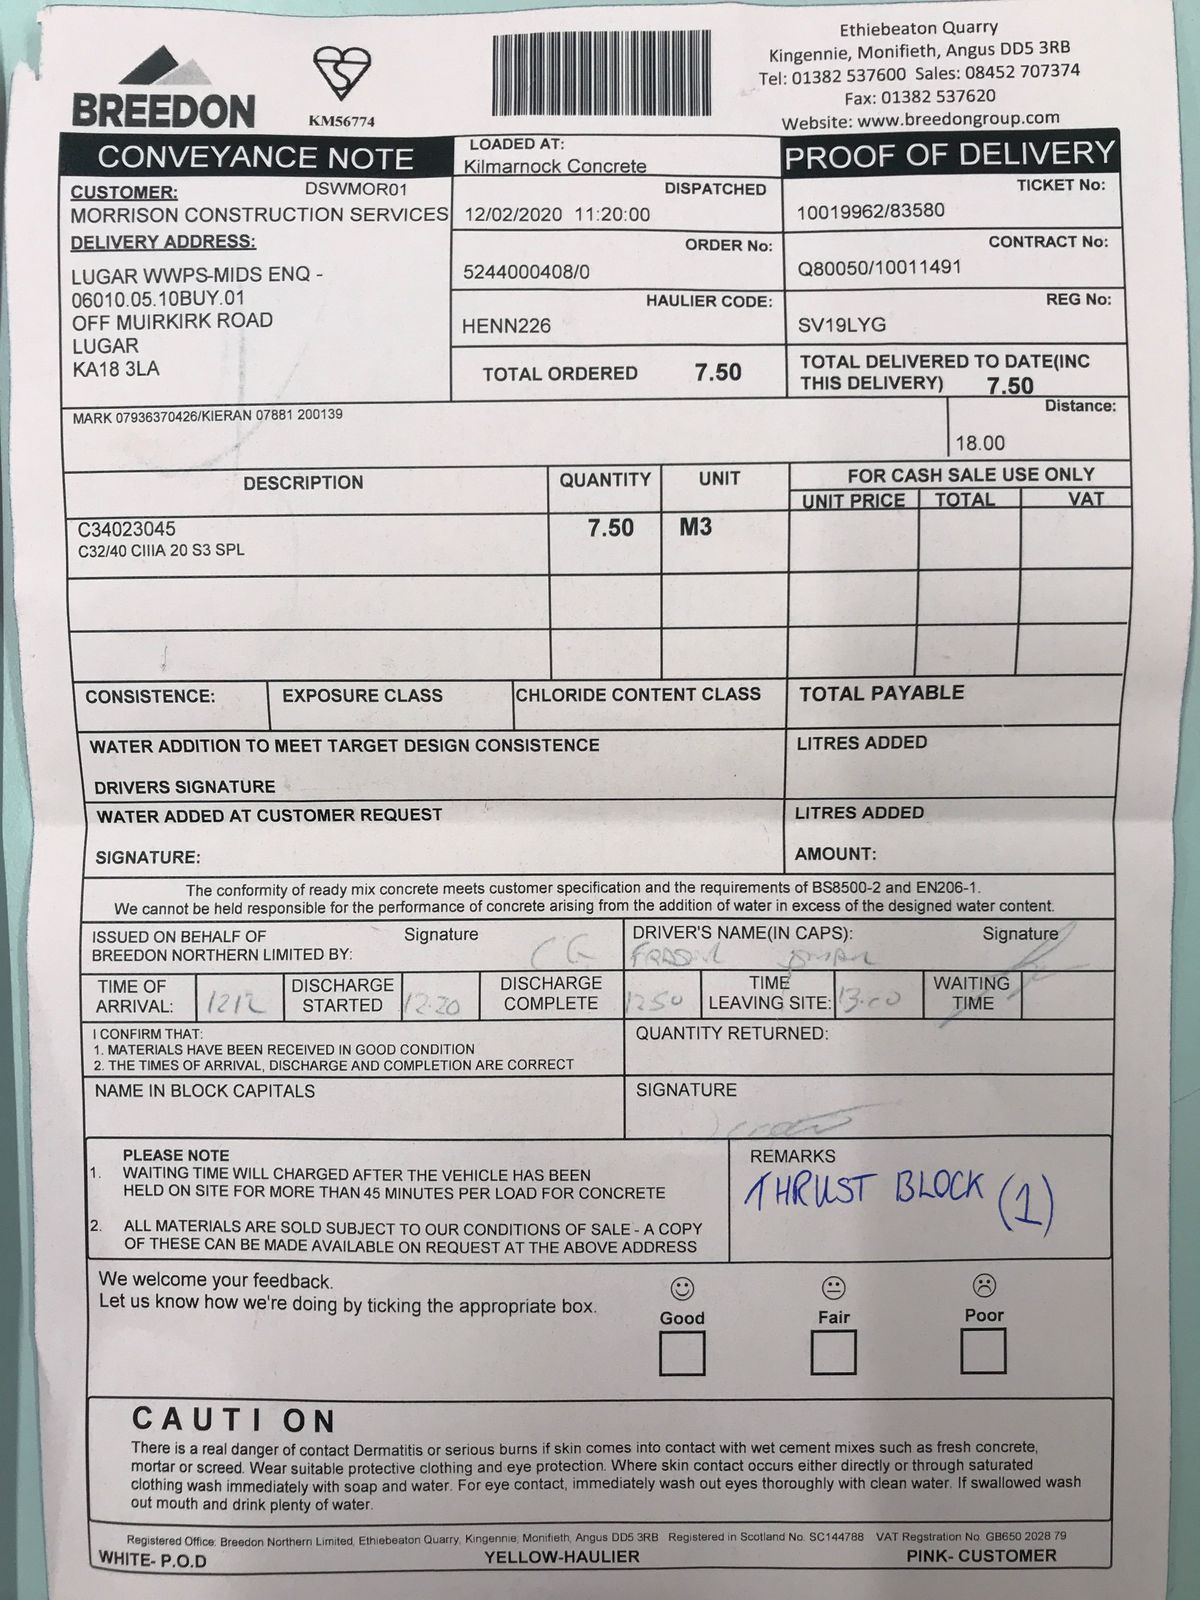 BREEDON
KM56774
Ethiebeaton Quarry
Kingennie, Monifieth, Angus DD5 3RB
Tel: 01382 537600 Sales: 08452 707374
Fax: 01382 537620
Website: www.breedongroup.com
CONVEYANCE NOTE
LOADED AT:
Kilmarnock Concrete
PROOF OF DELIVERY
CUSTOMER: DSWMOR01
MORRISON CONSTRUCTION SERVICES
DISPATCHED
12/02/2020 11:20:00
TICKET No:
10019962/83580
DELIVERY ADDRESS:
LUGAR WWPS-MIDS ENQ -
06010.05.10BUY.01
OFF MUIRKIRK ROAD
LUGAR
KA18 3LA
ORDER No:
5244000408/0
CONTRACT No:
Q80050/10011491
HAULIER CODE:
HENN226
REG No:
SV19LYG
TOTAL ORDERED 7.50
TOTAL DELIVERED TO DATE(INC
THIS DELIVERY) 7.50
MARK 07936370426/KIERAN 07881 200139
Distance:
18.00
DESCRIPTION QUANTITY UNIT FOR CASH SALE USE ONLY
UNIT PRICE TOTAL VAT
C34023045 7.50 M3
C32/40 CIIIA 20 S3 SPL
CONSISTENCE: EXPOSURE CLASS CHLORIDE CONTENT CLASS TOTAL PAYABLE
WATER ADDITION TO MEET TARGET DESIGN CONSISTENCE LITRES ADDED
DRIVERS SIGNATURE
WATER ADDED AT CUSTOMER REQUEST LITRES ADDED
SIGNATURE: AMOUNT:
The conformity of ready mix concrete meets customer specification and the requirements of BS8500-2 and EN206-1.
We cannot be held responsible for the performance of concrete arising from the addition of water in excess of the designed water content.
ISSUED ON BEHALF OF Signature
BREEDON NORTHERN LIMITED BY: CG
DRIVER'S NAME(IN CAPS): Signature
TIME OF
ARRIVAL: 1212
DISCHARGE
STARTED 12.20
DISCHARGE
COMPLETE 1250
TIME
LEAVING SITE: 13.00
WAITING
TIME
I CONFIRM THAT:
1. MATERIALS HAVE BEEN RECEIVED IN GOOD CONDITION
2. THE TIMES OF ARRIVAL, DISCHARGE AND COMPLETION ARE CORRECT
QUANTITY RETURNED:
NAME IN BLOCK CAPITALS
SIGNATURE
PLEASE NOTE
1. WAITING TIME WILL CHARGED AFTER THE VEHICLE HAS BEEN
HELD ON SITE FOR MORE THAN 45 MINUTES PER LOAD FOR CONCRETE
2. ALL MATERIALS ARE SOLD SUBJECT TO OUR CONDITIONS OF SALE - A COPY
OF THESE CAN BE MADE AVAILABLE ON REQUEST AT THE ABOVE ADDRESS
REMARKS
THRUST BLOCK (1)
We welcome your feedback.
Let us know how we're doing by ticking the appropriate box.
Good Fair Poor
CAUTION
There is a real danger of contact Dermatitis or serious burns if skin comes into contact with wet cement mixes such as fresh concrete,
mortar or screed. Wear suitable protective clothing and eye protection. Where skin contact occurs either directly or through saturated
clothing wash immediately with soap and water. For eye contact, immediately wash out eyes thoroughly with clean water. If swallowed wash
out mouth and drink plenty of water.
Registered Office: Breedon Northern Limited, Ethiebeaton Quarry, Kingennie, Monifieth, Angus DD5 3RB Registered in Scotland No. SC144788 VAT Regstration No. GB650 2028 79
WHITE- P.O.D YELLOW-HAULIER PINK- CUSTOMER